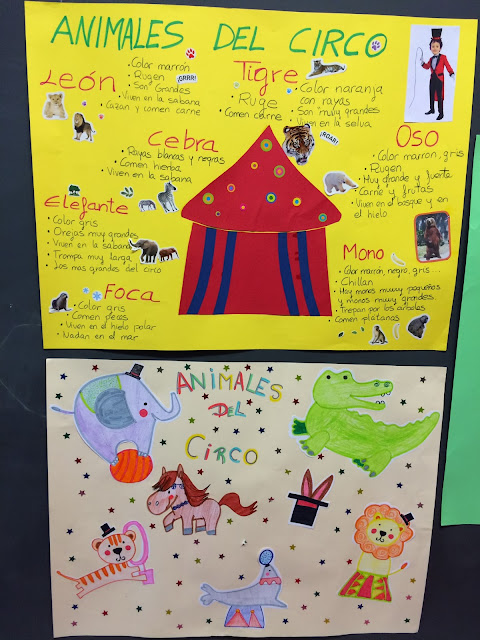 ANIMALES DEL CIRCO
León
• Color marrón
• Rugen ¡GRRR!
• Son grandes
• Viven en la sabana
• Cazan y comen carne
Tigre
• Ruge
• Comen carne
• Color naranja
con rayas
• Son muy grandes
• Viven en la selva
¡ROAR!
Cebra
• Rayas blancas y negras
• Comen hierba
• Viven en la sabana
Oso
• Color marrón, gris
• Rugen
• Muy grande y fuerte
• Carne y frutas
• Viven en el bosque y en
el hielo
Elefante
• Color gris
• Orejas muy grandes
• Viven en la sabana
• Trompa muy larga
• Los mas grandes del circo
Mono
• Color marrón, negro, gris...
• Chillan
• Hay monos muuy pequeños
y monos muy grandes.
• Trepan por los árboles
• Comen plátanos
Foca
• Color gris
• Comen peces
• Viven en el hielo polar
• Nadan en el mar
ANIMALES
DEL
CIRCO